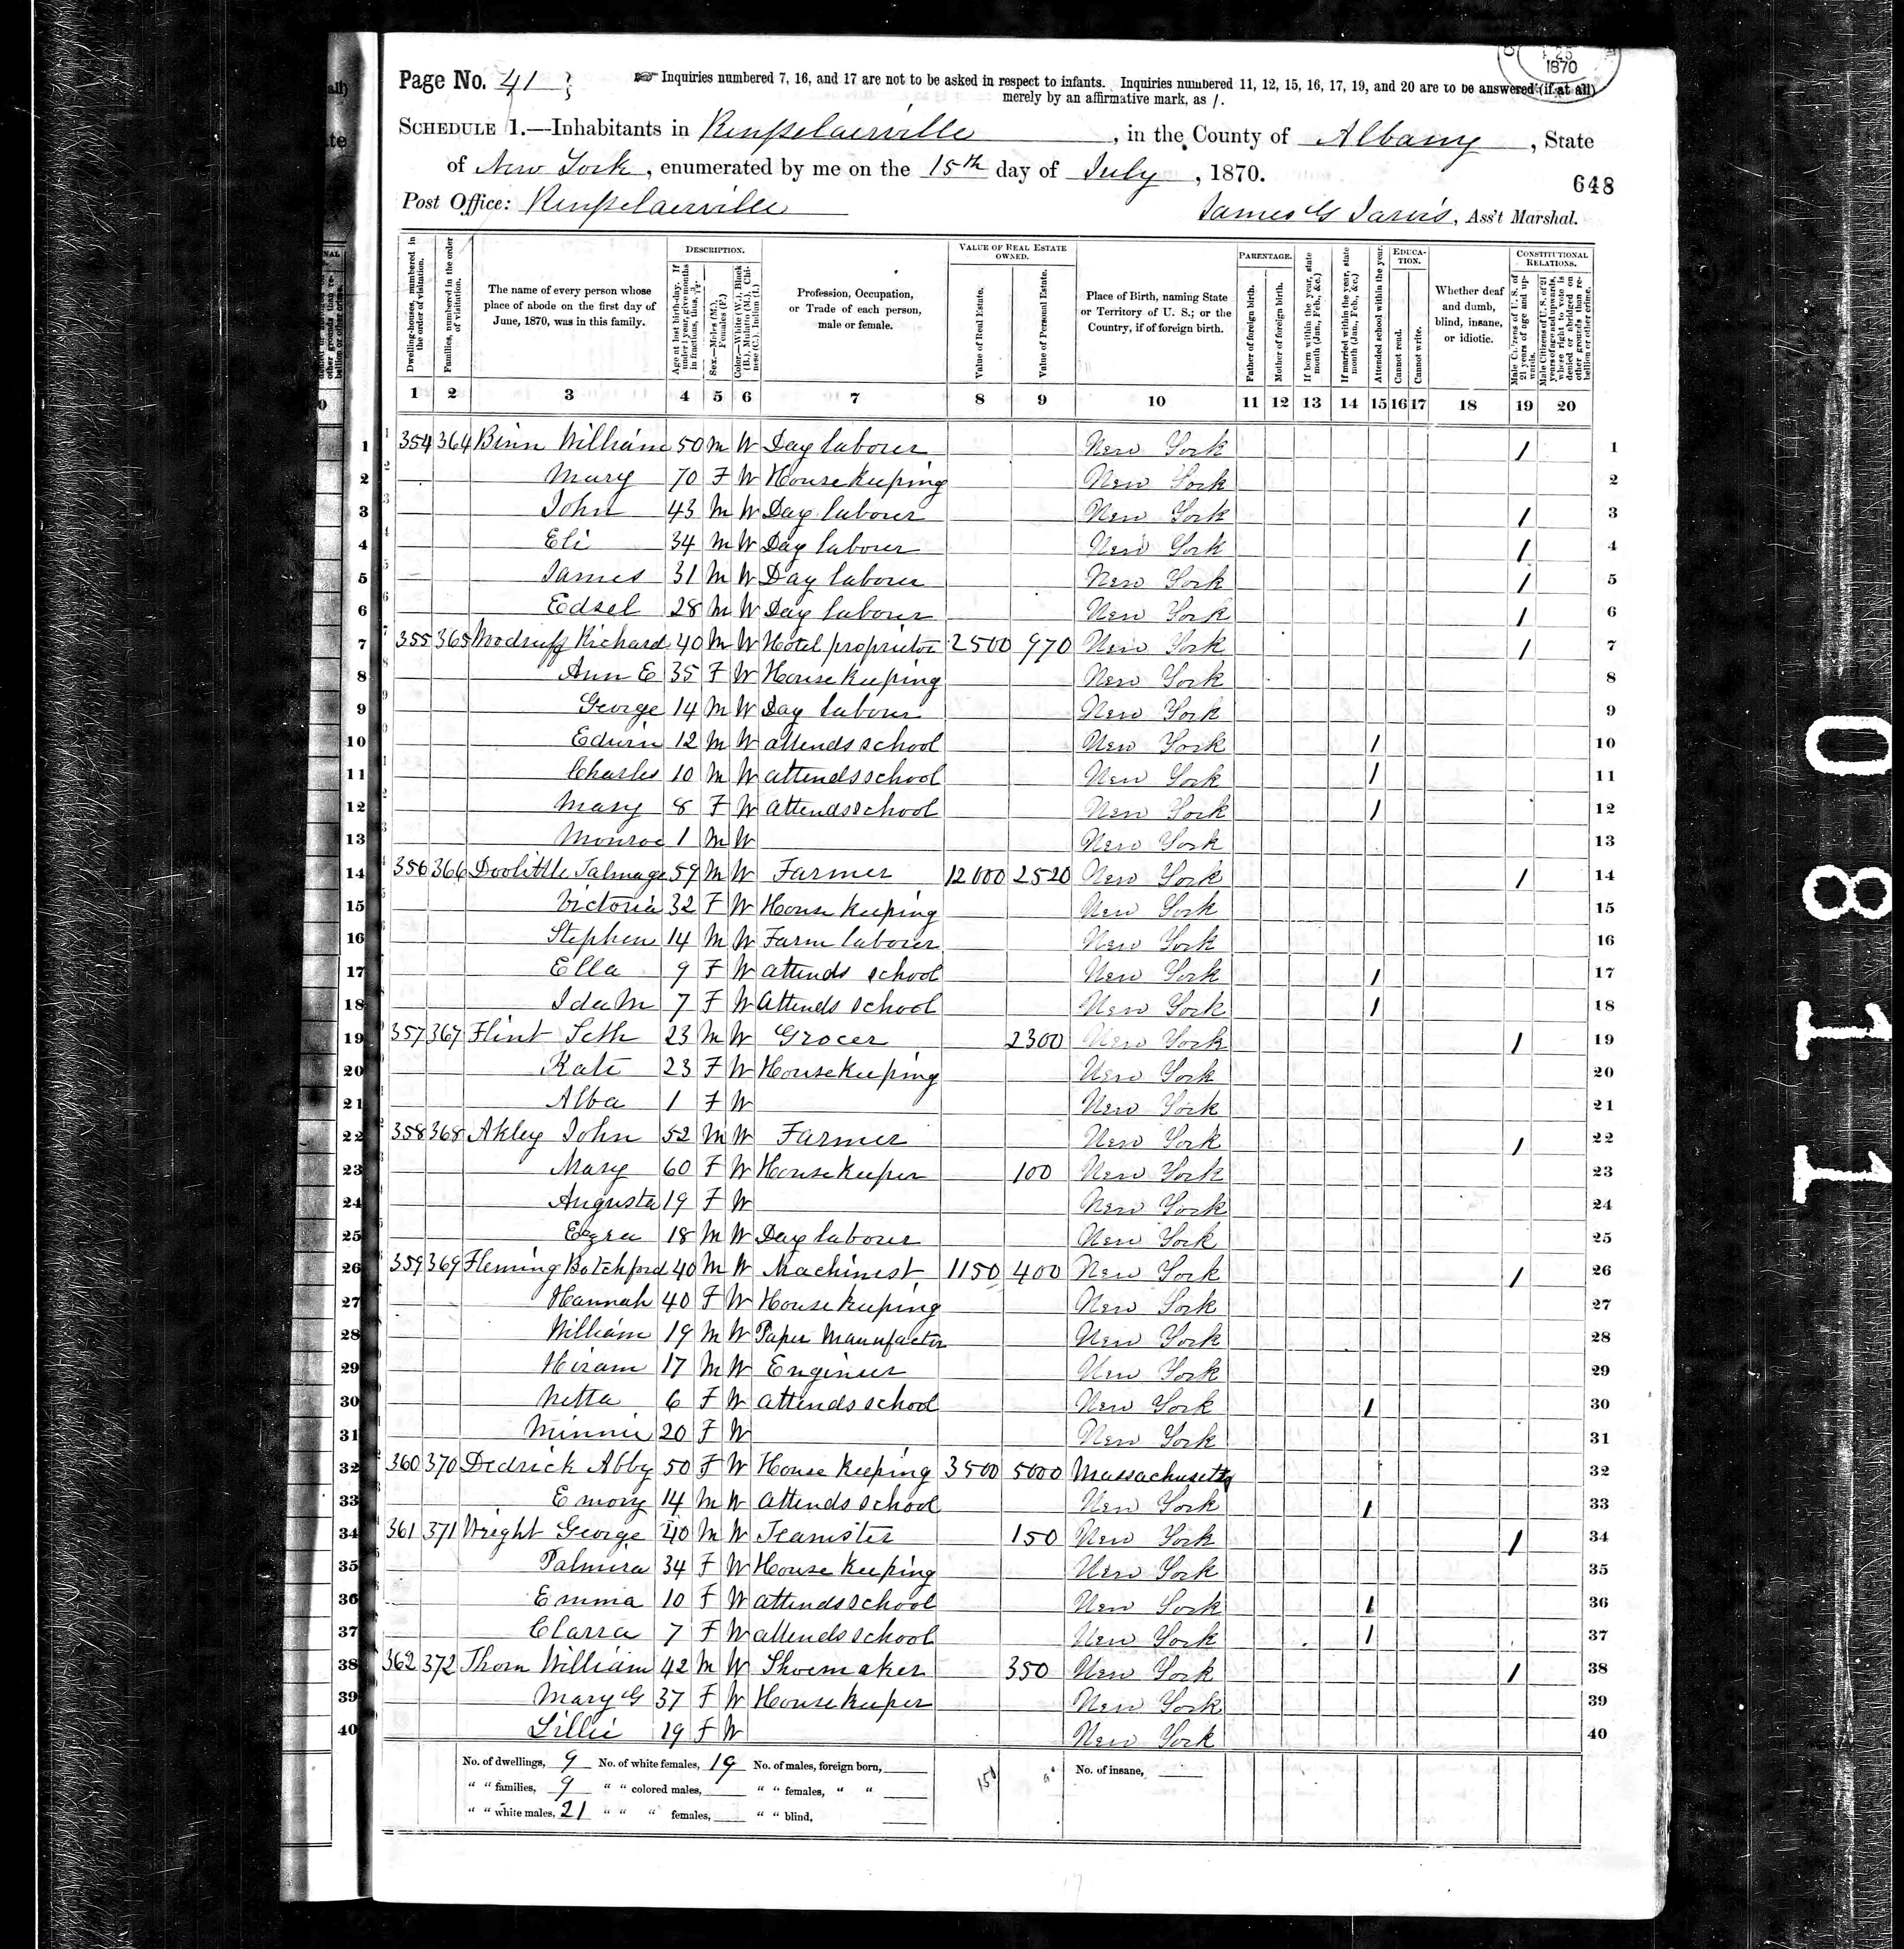 Page No. 41
☞ Inquiries numbered 7, 16, and 17 are not to be asked in respect to infants. Inquiries numbered 11, 12, 15, 16, 17, 19, and 20 are to be answered (if at all)
merely by an affirmative mark, as /.
1870
SCHEDULE 1.—Inhabitants in Rensselaerville, in the County of Albany, State
of New York, enumerated by me on the 15th day of July, 1870.
648
Post Office: Rensselaerville
James G Jarvis, Ass't Marshal.
Dwelling-houses, numbered in the order of visitation.
Families, numbered in the order of visitation.
The name of every person whose place of abode on the first day of June, 1870, was in this family.
DESCRIPTION.
Age at last birth-day. If under 1 year, give months in fractions, thus, 3/12
Sex.—Males (M.), Females (F.)
Color.—White (W.), Black (B.), Mulatto (M.), Chinese (C.), Indian (I.)
Profession, Occupation, or Trade of each person, male or female.
VALUE OF REAL ESTATE OWNED.
Value of Real Estate.
Value of Personal Estate.
Place of Birth, naming State or Territory of U. S.; or the Country, if of foreign birth.
PARENTAGE.
Father of foreign birth.
Mother of foreign birth.
If born within the year, state month (Jan., Feb., &c.)
If married within the year, state month (Jan., Feb., &c.)
Attended school within the year.
EDUCATION.
Cannot read.
Cannot write.
Whether deaf and dumb, blind, insane, or idiotic.
CONSTITUTIONAL RELATIONS.
Male Citizens of U. S. of 21 years of age and upwards.
Male Citizens of U. S. of 21 years of age and upwards, where right to vote is denied or abridged on other grounds than rebellion or other crime.
1 2 3 4 5 6 7 8 9 10 11 12 13 14 15 16 17 18 19 20
1 354 364 Binn William 50 M W Day laborer New York / 1
2 Mary 70 F W House Keeping New York 2
3 John 43 M W Day laborer New York / 3
4 Eli 34 M W Day laborer New York / 4
5 James 31 M W Day laborer New York / 5
6 Edsel 28 M W Day laborer New York / 6
7 355 365 Woodruff Richard 40 M W Hotel proprietor 2500 970 New York / 7
8 Ann E 35 F W House Keeping New York 8
9 George 14 M W Day laborer New York 9
10 Edwin 12 M W attends school New York / 10
11 Charles 10 M W attends school New York / 11
12 Mary 8 F W attends school New York / 12
13 Monroe 1 M W New York 13
14 356 366 Doolittle Talmage 59 M W Farmer 12000 2520 New York / 14
15 Victoria 32 F W House Keeping New York 15
16 Stephen 14 M W Farm laborer New York 16
17 Ella 9 F W attends school New York / 17
18 Ida M 7 F W Attends school New York / 18
19 357 367 Flint Seth 23 M W Grocer 2300 New York / 19
20 Kate 23 F W House Keeping New York 20
21 Alba 1 F W New York 21
22 358 368 Akley John 52 M W Farmer New York / 22
23 Mary 60 F W House Keeper 100 New York 23
24 Augusta 19 F W New York 24
25 Ezra 18 M W Day laborer New York 25
26 359 369 Fleming Botchford 40 M W Machinest 1150 400 New York / 26
27 Hannah 40 F W House Keeping New York 27
28 William 19 M W Paper Manufactor New York 28
29 Hiram 17 M W Engineer New York 29
30 Netta 6 F W attends school New York / 30
31 Minnie 20 F W New York 31
32 360 370 Dedrick Abby 50 F W House Keeping 3500 5000 Massachusetts 32
33 Emory 14 M W attends school New York / 33
34 361 371 Wright George 40 M W Teamster 150 New York / 34
35 Palmira 34 F W House Keeping New York 35
36 Emma 10 F W attends school New York / 36
37 Clarra 7 F W attends school New York / 37
38 362 372 Thorn William 42 M W Shoemaker 350 New York / 38
39 Mary G 37 F W House Keeper New York 39
40 Lillie 19 F W New York 40
No. of dwellings, 9 No. of white females, 19 No. of males, foreign born, No. of insane,
" " families, 9 " " colored males, " " females, " "
" " white males, 21 " " " females, " " blind,
0811